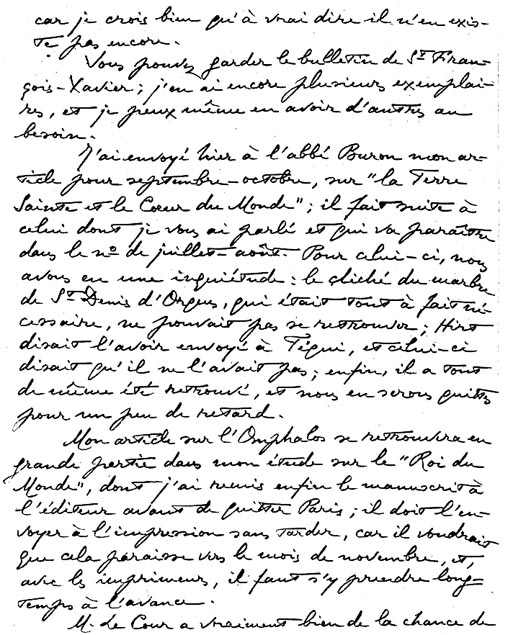 car je crois bien qu'à vrai dire il n'en exis-
te pas encore.
Vous pouvez garder le bulletin de St Fran-
çois-Xavier ; j'en ai encore plusieurs exemplai-
res, et je peux même en avoir d'autres au
besoin.
J'ai envoyé hier à l'abbé Buron mon ar-
ticle pour septembre-octobre, sur "la Terre
Sainte et le Cœur du Monde" ; il fait suite à
celui dont je vous ai parlé et qui va paraître
dans le no de juillet-août. Pour celui-ci, nous
avons eu une inquiétude : le cliché du marbre
de St Denis d'Orques, qui était tout à fait né-
cessaire, ne pouvait pas se retrouver ; Hirt
disait l'avoir envoyé à Téqui, et celui-ci
disait qu'il ne l'avait pas ; enfin, il a tout
de même été retrouvé, et nous en serons quittes
pour un peu de retard.
Mon article sur l'Omphalos se retrouvera en
grande partie dans mon étude sur le "Roi du
Monde", dont j'ai remis enfin le manuscrit à
l'éditeur avant de quitter Paris ; il doit l'en-
voyer à l'impression sans tarder, car il voudrait
que cela paraisse vers le mois de novembre, et,
avec les imprimeurs, il faut s'y prendre long-
temps à l'avance.
M. Le Cour a vraiment bien de la chance de